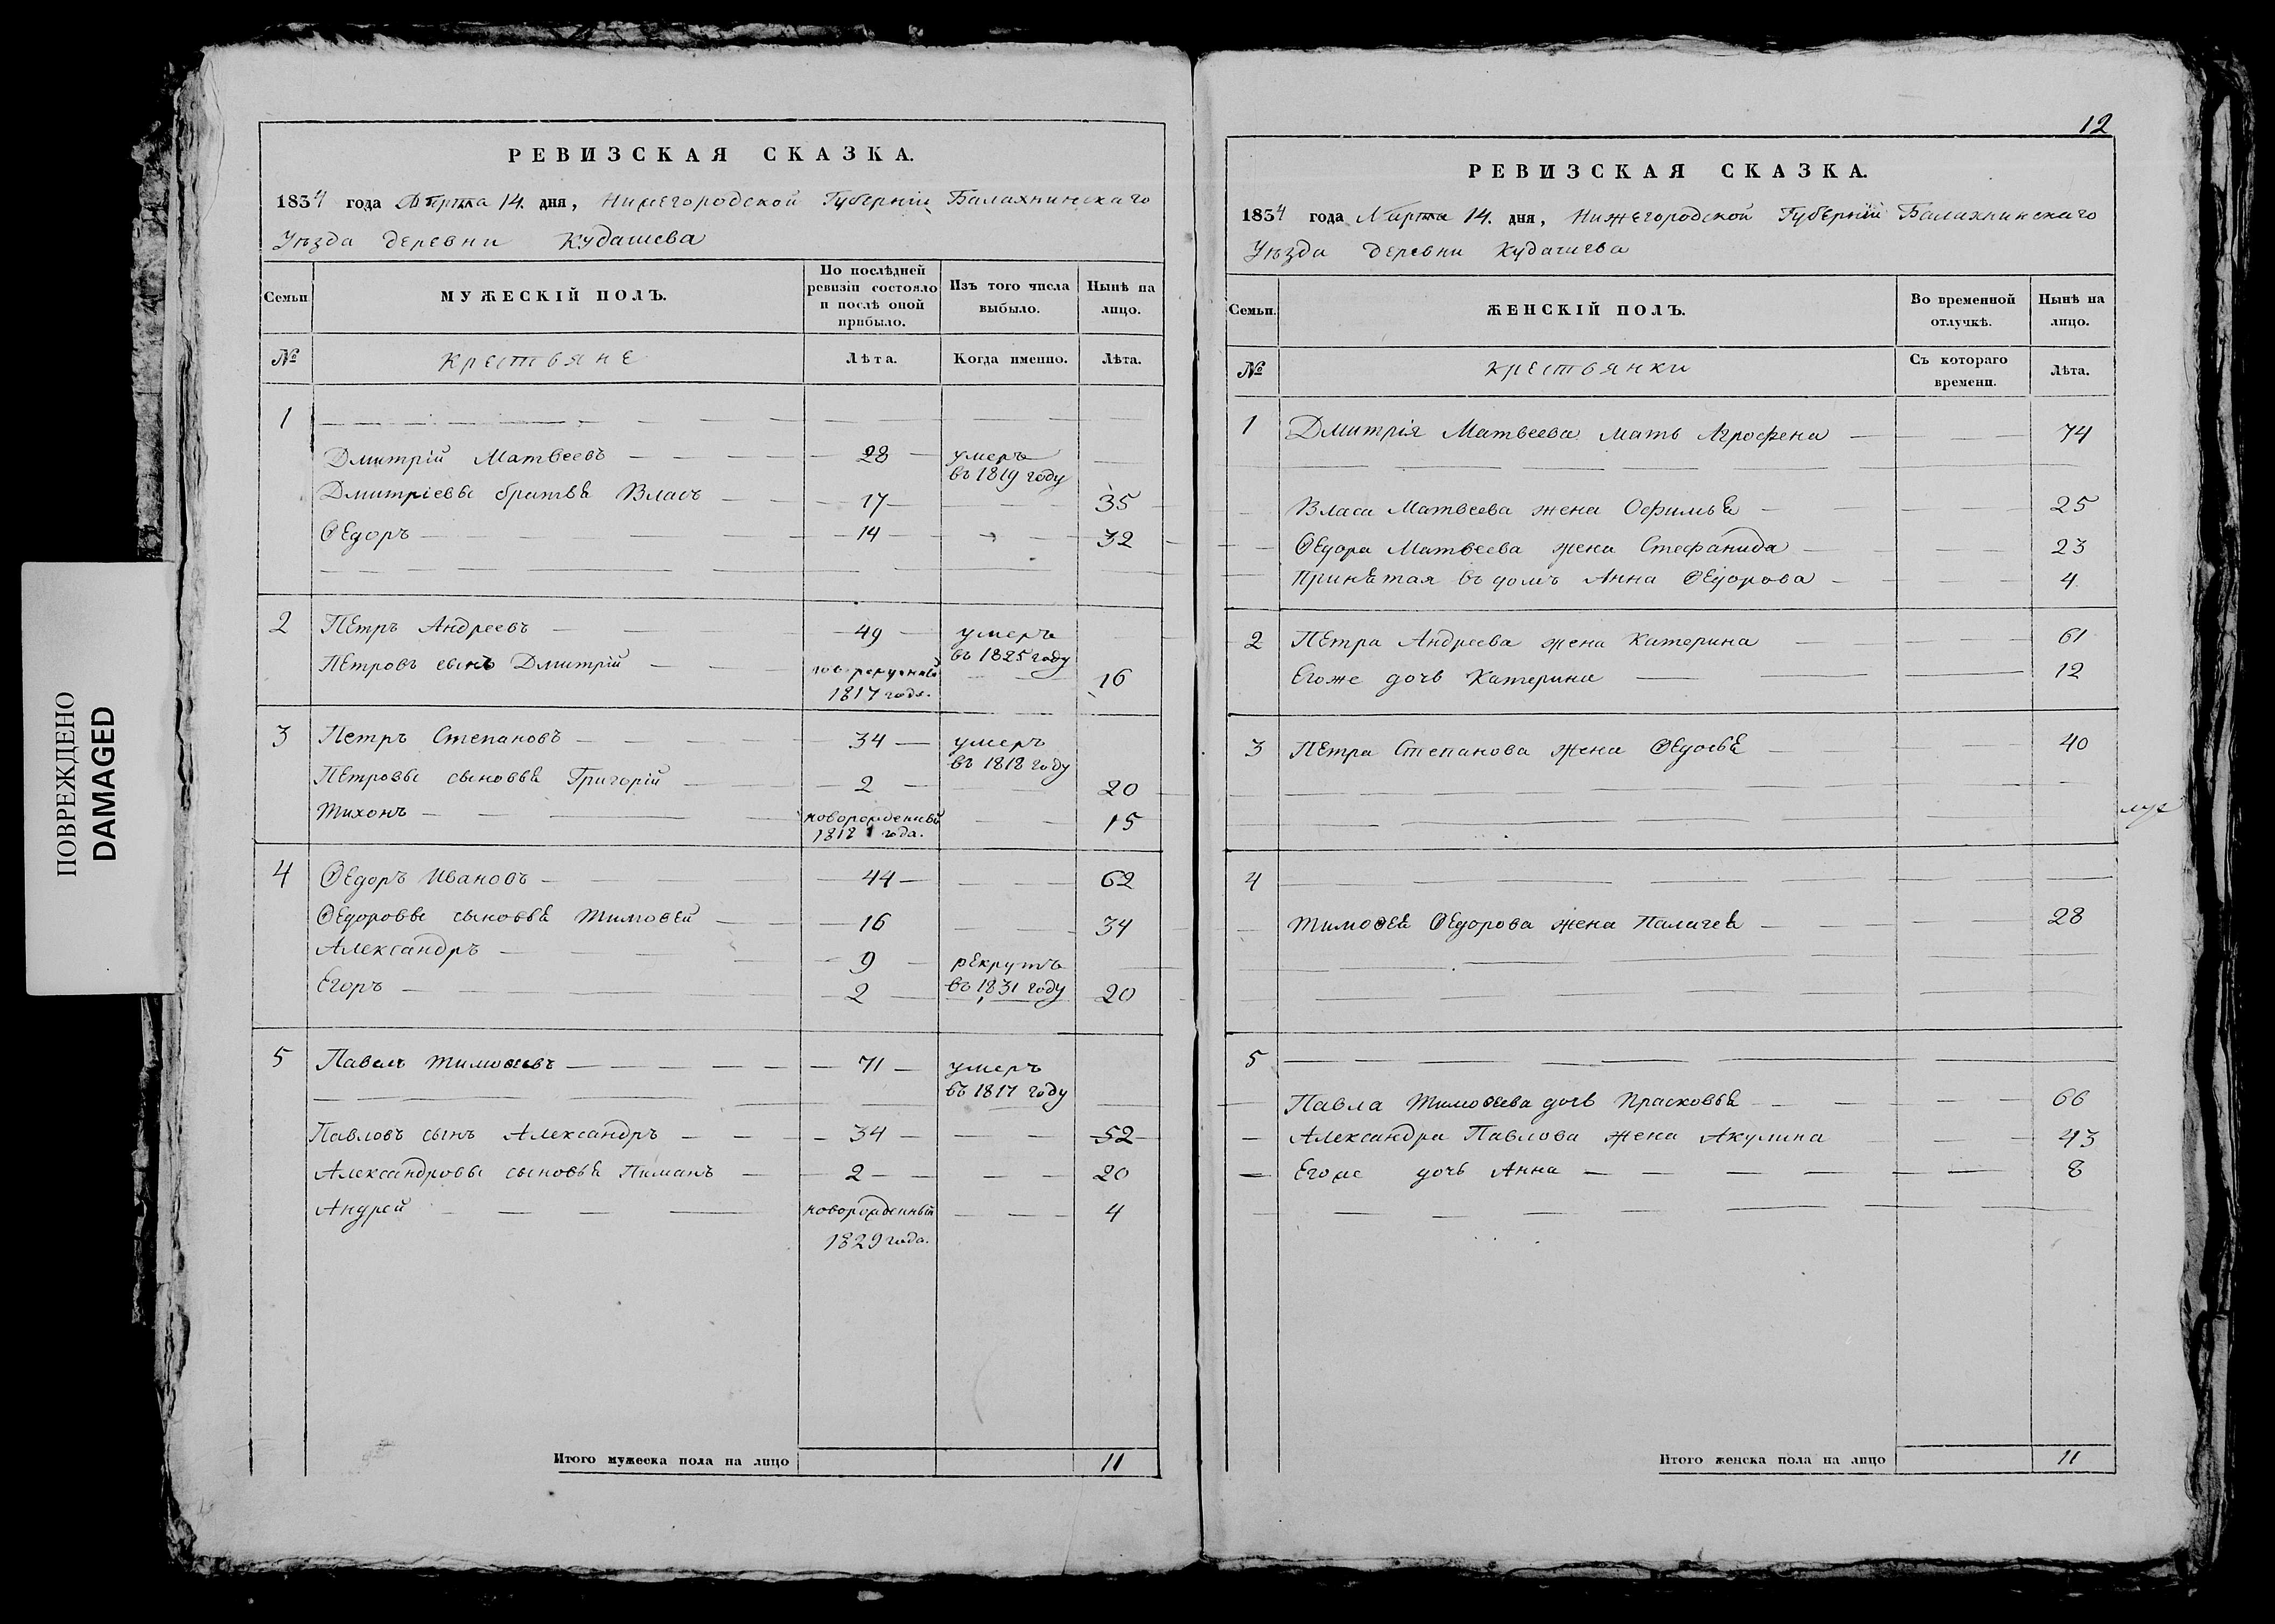 ПОВРЕЖДЕНО
DAMAGED
РЕВИЗСКАЯ СКАЗКА.
1834 года Марта 14. дня, Нижегородской Губернiи Балахнинскаго
Уѣзда деревни Кудашева
Семьи
МУЖЕСКІЙ ПОЛЪ.
По послѣдней ревизіи состояло и послѣ оной прибыло.
Изъ того числа выбыло.
Нынѣ на лицо.
№ Крестьяне Лѣта. Когда именно. Лѣта.
1
Дмитрій Матвеевъ 28 умеръ
въ 1819 году
Дмитріевы братья Власъ 17 35
Ѳедоръ 14 32
2 Петръ Андреевъ 49 умеръ
въ 1825 году
Петровъ сынъ Дмитрій 16
1817 года.
3 Петръ Степановъ 34 умеръ
въ 1818 году
Петровы сыновья Григорій 2 20
Тихонъ новорожденный 15
1818 года.
4 Ѳедоръ Ивановъ 44 62
Ѳедоровы сыновья Тимоѳей 16 34
Александръ 9 рекрутъ
въ 1831 году
Егоръ 2 20
5 Павелъ Тимоѳеевъ 71 умеръ
въ 1817 году
Павловъ сынъ Александръ 34 52
Александровы сыновья Пиманъ 2 20
Андрей новорожденный 4
1829 года.
Итого мужеска пола на лицо 11
12
РЕВИЗСКАЯ СКАЗКА.
1834 года Марта 14. дня, Нижегородской Губернiи Балахнинскаго
Уѣзда деревни Кудашева
Семьи.
ЖЕНСКІЙ ПОЛЪ.
Во временной отлучкѣ.
Нынѣ на лицо.
№ Крестьянки Съ котораго времени. Лѣта.
1 Дмитрія Матвеева мать Агрофена 74
Власа Матвеева жена Офимья 25
Ѳедора Матвеева жена Стефанида 23
Принятая въ домъ Анна Ѳедорова 4
2 Петра Андреева жена Катерина 61
Егоже дочь Катерина 12
3 Петра Степанова жена Ѳедосья 40
4
Тимоѳея Ѳедорова жена Палагея 28
5
Павла Тимоѳеева дочь Прасковья 66
Александра Павлова жена Акулина 43
Егоже дочь Анна 8
Итого женска пола на лицо 11